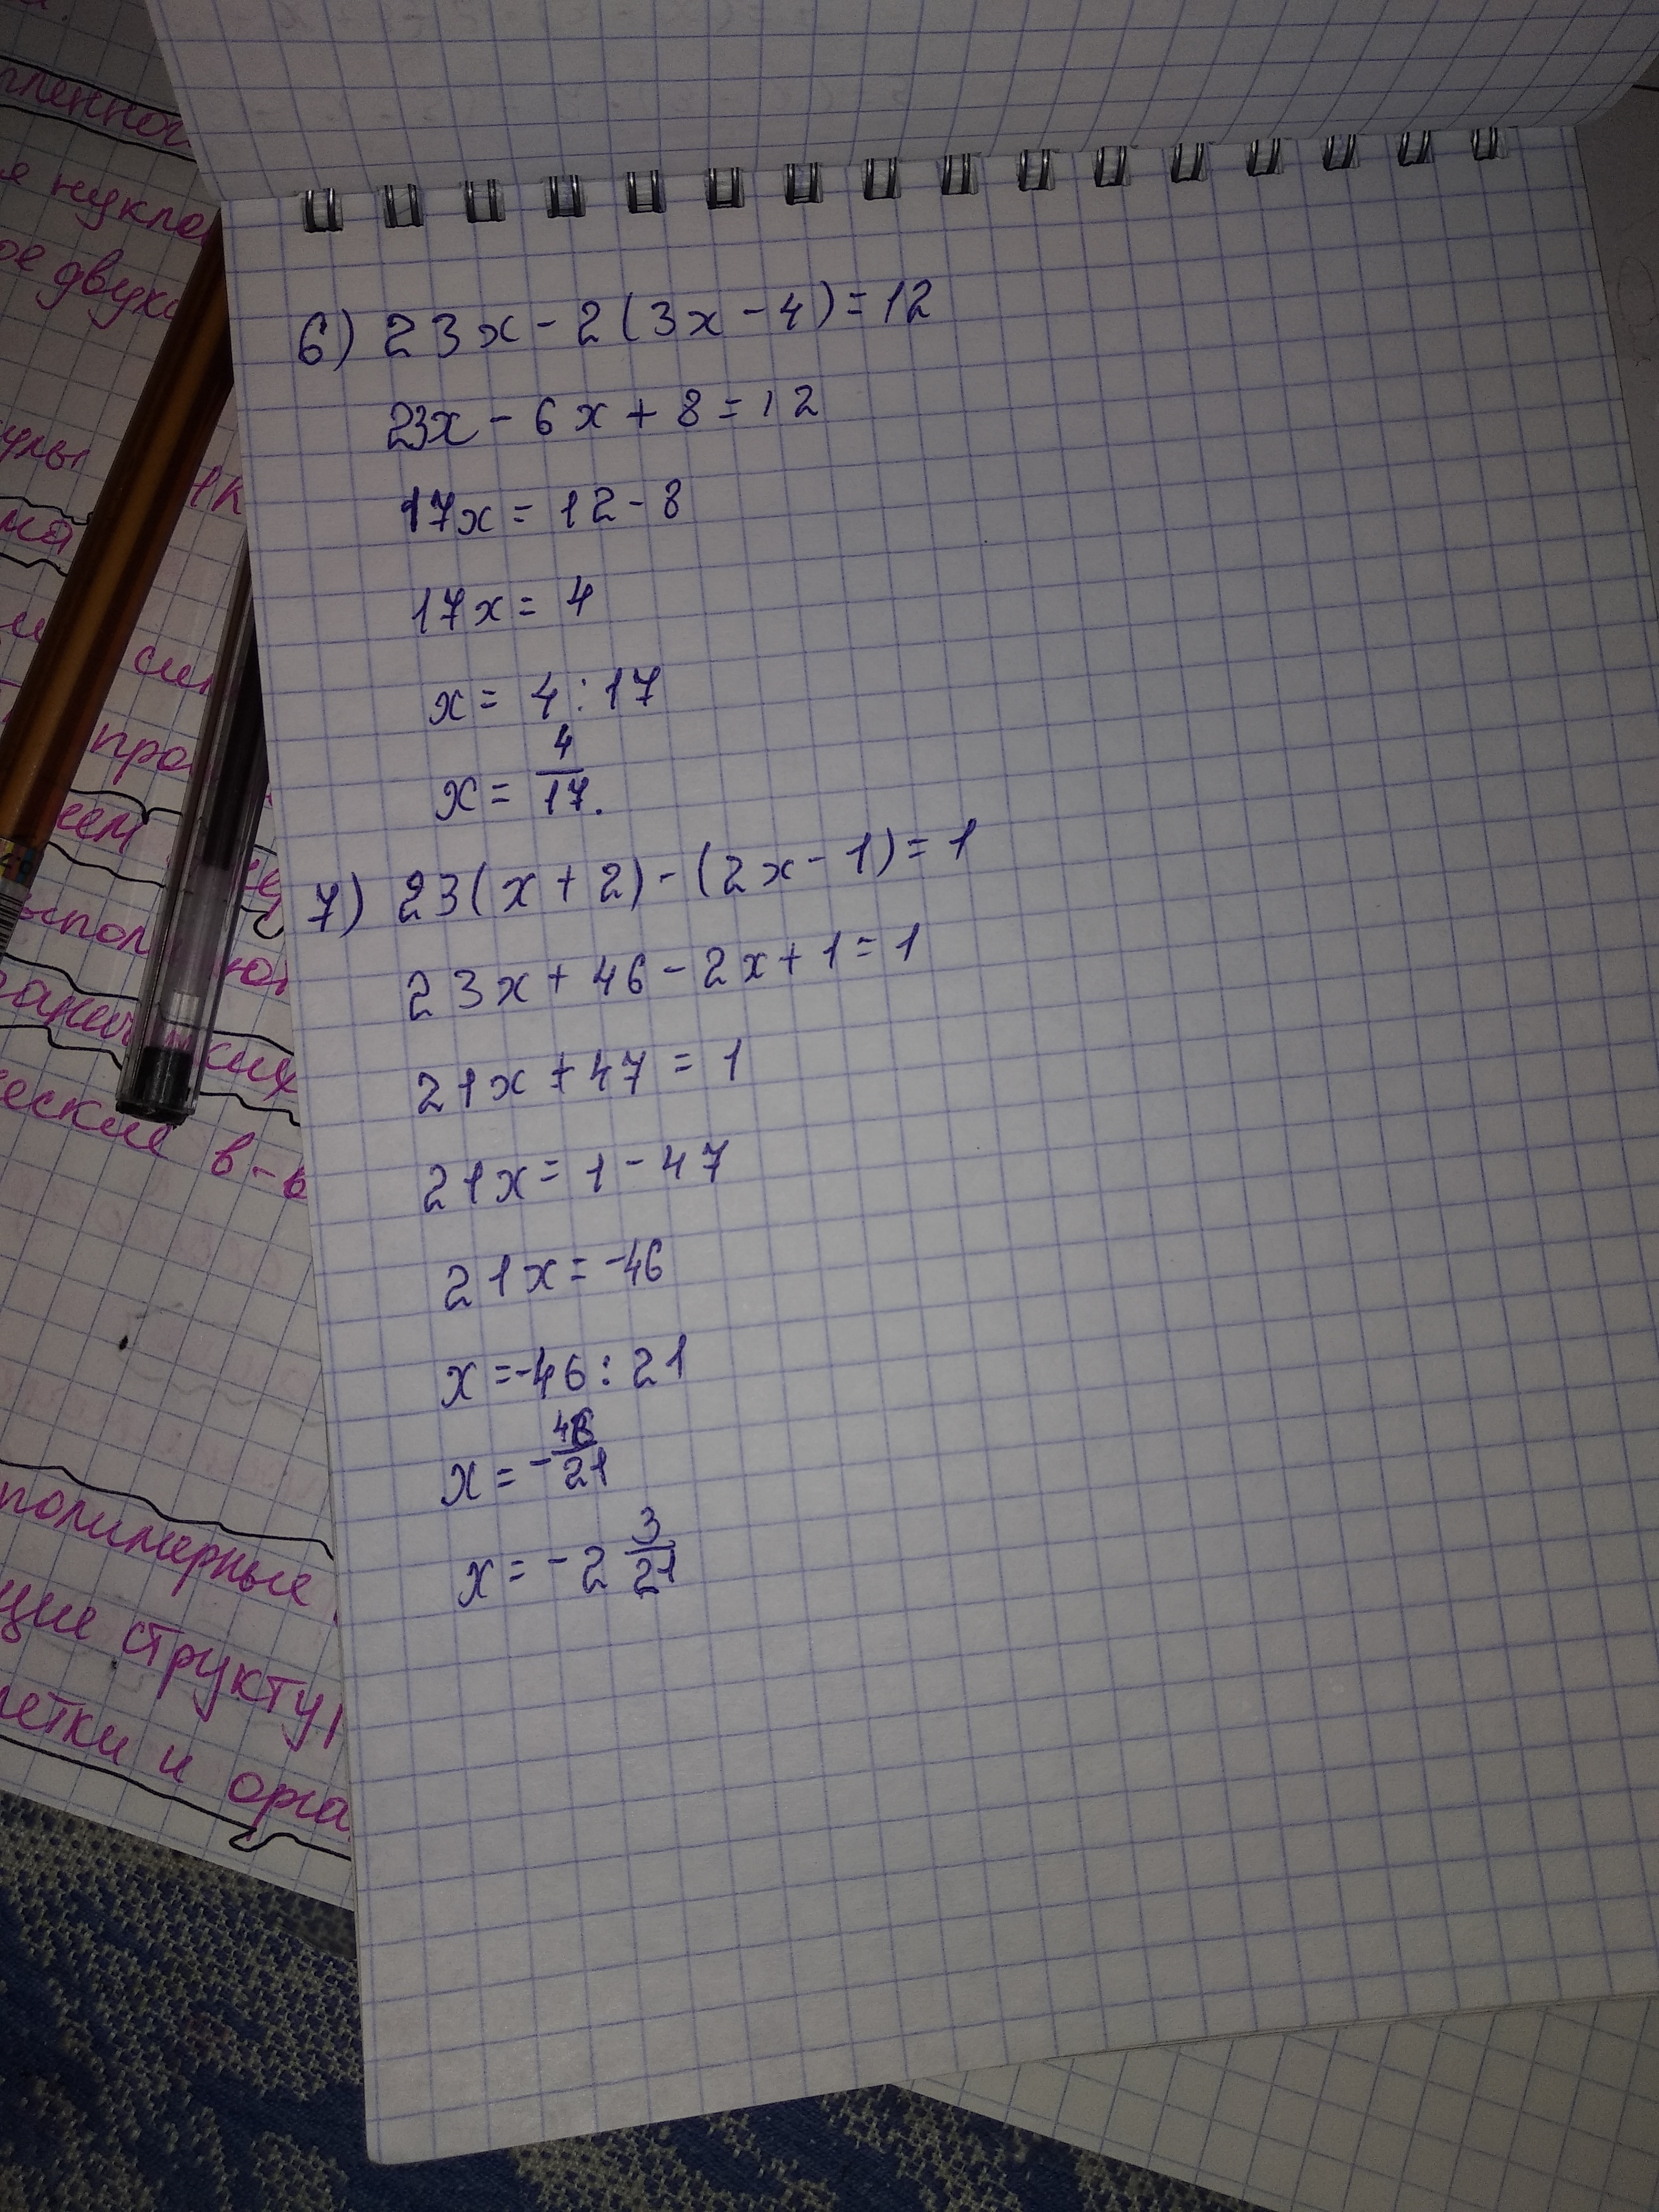 6) 23x - 2(3x - 4) = 12
23x - 6x + 8 = 12
17x = 12 - 8
17x = 4
x = 4 : 17
x = 4/17.
7) 23(x + 2) - (2x - 1) = 1
23x + 46 - 2x + 1 = 1
21x + 47 = 1
21x = 1 - 47
21x = -46
x = -46 : 21
x = - 46/21
x = - 2 3/21
двух
про
ческие в-в
полимерные
структур
и орга